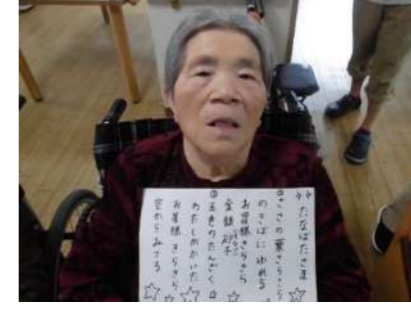 ☆☆たなばたさま
①ささの葉さらさら
のきばにゆれる
お星様きらきら
金銀砂子
②五色のたんざく
わたしがかいた
お星様きらきら
空からみてる